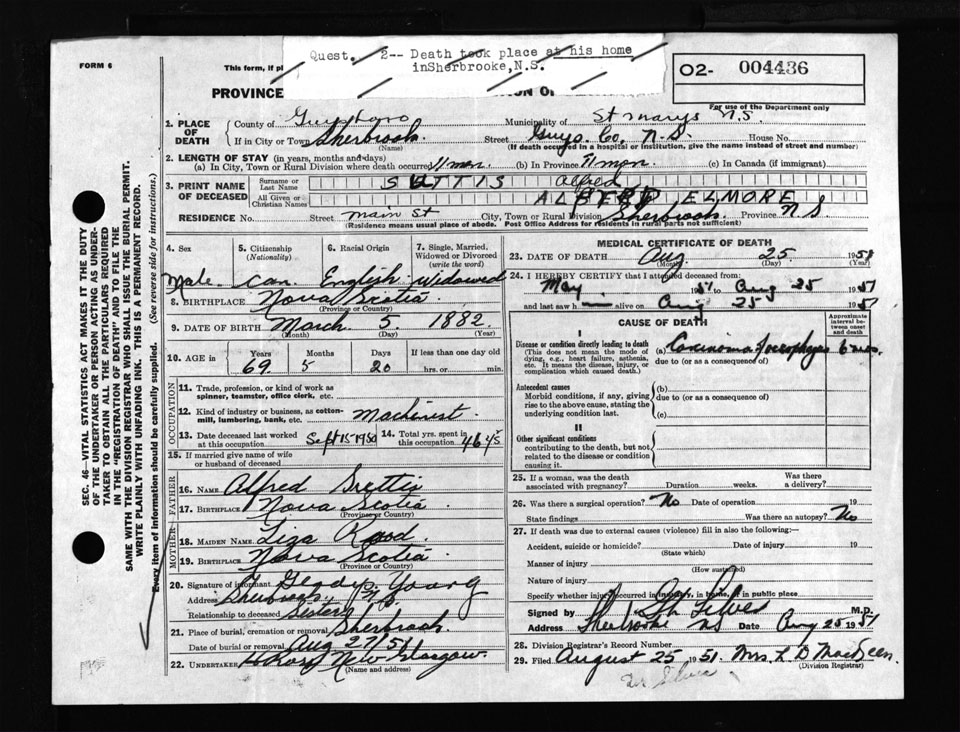 Quest. 2-- Death took place at his home
inSherbrooke,N.S.
FORM 6
This form, if pl
O2- 004436
PROVINCE
ION OF
For use of the Department only
1. PLACE OF DEATH
County of Guysboro Municipality of St Marys N.S.
If in City or Town Sherbrook. Street Guys. Co. N.S. House No.
(Name) (If death occurred in a hospital or institution, give the name instead of street and number)
2. LENGTH OF STAY (in years, months and days)
(a) In City, Town or Rural Division where death occurred 11 mon. (b) In Province 11 mon. (c) In Canada (if immigrant)
3. PRINT NAME OF DECEASED
Surname or Last Name Alfred
All Given or Christian Names ELMORE
RESIDENCE No. Street Main St City, Town or Rural Division Sherbrook Province N S
(Residence means usual place of abode. Post Office Address for residents in rural parts not sufficient)
4. Sex 5. Citizenship (Nationality) 6. Racial Origin 7. Single, Married, Widowed or Divorced (write the word)
Male Can. English Widowed
8. BIRTHPLACE Nova Scotia
(Province or Country)
9. DATE OF BIRTH March 5 1882
(Month) (Day) (Year)
10. AGE in Years Months Days If less than one day old
69 5 20 hrs. or min.
OCCUPATION
11. Trade, profession, or kind of work as spinner, teamster, office clerk, etc.
12. Kind of industry or business, as cotton-mill, lumbering, bank, etc. Machinest
13. Date deceased last worked at this occupation Sept 15 1950 14. Total yrs. spent in this occupation
15. If married give name of wife or husband of deceased
FATHER
16. NAME Alfred
17. BIRTHPLACE Nova Scotia
(Province or Country)
MOTHER
18. MAIDEN NAME Liza
19. BIRTHPLACE Nova Scotia
(Province or Country)
20. Signature of informant Gladys Young
Address N.S.
Relationship to deceased Sister
21. Place of burial, cremation or removal Sherbrook.
Date of burial or removal Aug 27/51
22. UNDERTAKER New Glasgow
(Name and address)
MEDICAL CERTIFICATE OF DEATH
23. DATE OF DEATH Aug 25 1951
(Month) (Day) (Year)
24. I HEREBY CERTIFY that I attended deceased from:
May 1951 to Aug 25 1951
and last saw h alive on Aug 25 1951
CAUSE OF DEATH
Approximate interval between onset and death
I
Disease or condition directly leading to death (a) Carcinoma 6 mos.
(This does not mean the mode of dying, e.g., heart failure, asthenia, etc. It means the disease, injury, or complication which caused death.) due to (or as a consequence of)
Antecedent causes (b)
Morbid conditions, if any, giving rise to the above cause, stating the underlying condition last. due to (or as a consequence of)
(c)
II
Other significant conditions
contributing to the death, but not related to the disease or condition causing it.
25. If a woman, was the death associated with pregnancy? Duration weeks. Was there a delivery?
26. Was there a surgical operation? No Date of operation 19
State findings Was there an autopsy? No
27. If death was due to external causes (violence) fill in also the following:—
Accident, suicide or homicide? Date of injury 19
(State which)
Manner of injury
(How sustained)
Nature of injury
Specify whether injury occurred in industry, in home, or in public place
Signed by M.D.
Address Sherbrooke NS Date Aug 25 1951
28. Division Registrar's Record Number
29. Filed August 25 1951 Mrs. L D MacKeen.
(Division Registrar)
SEC. 46—VITAL STATISTICS ACT MAKES IT THE DUTY
OF THE UNDERTAKER OR PERSON ACTING AS UNDER-
TAKER TO OBTAIN ALL THE PARTICULARS REQUIRED
IN THE "REGISTRATION OF DEATH" AND TO FILE THE
SAME WITH THE DIVISION REGISTRAR WHO SHALL ISSUE THE BURIAL PERMIT.
WRITE PLAINLY WITH UNFADING INK. THIS IS A PERMANENT RECORD.
Every item of information should be carefully supplied. (See reverse side for instructions.)